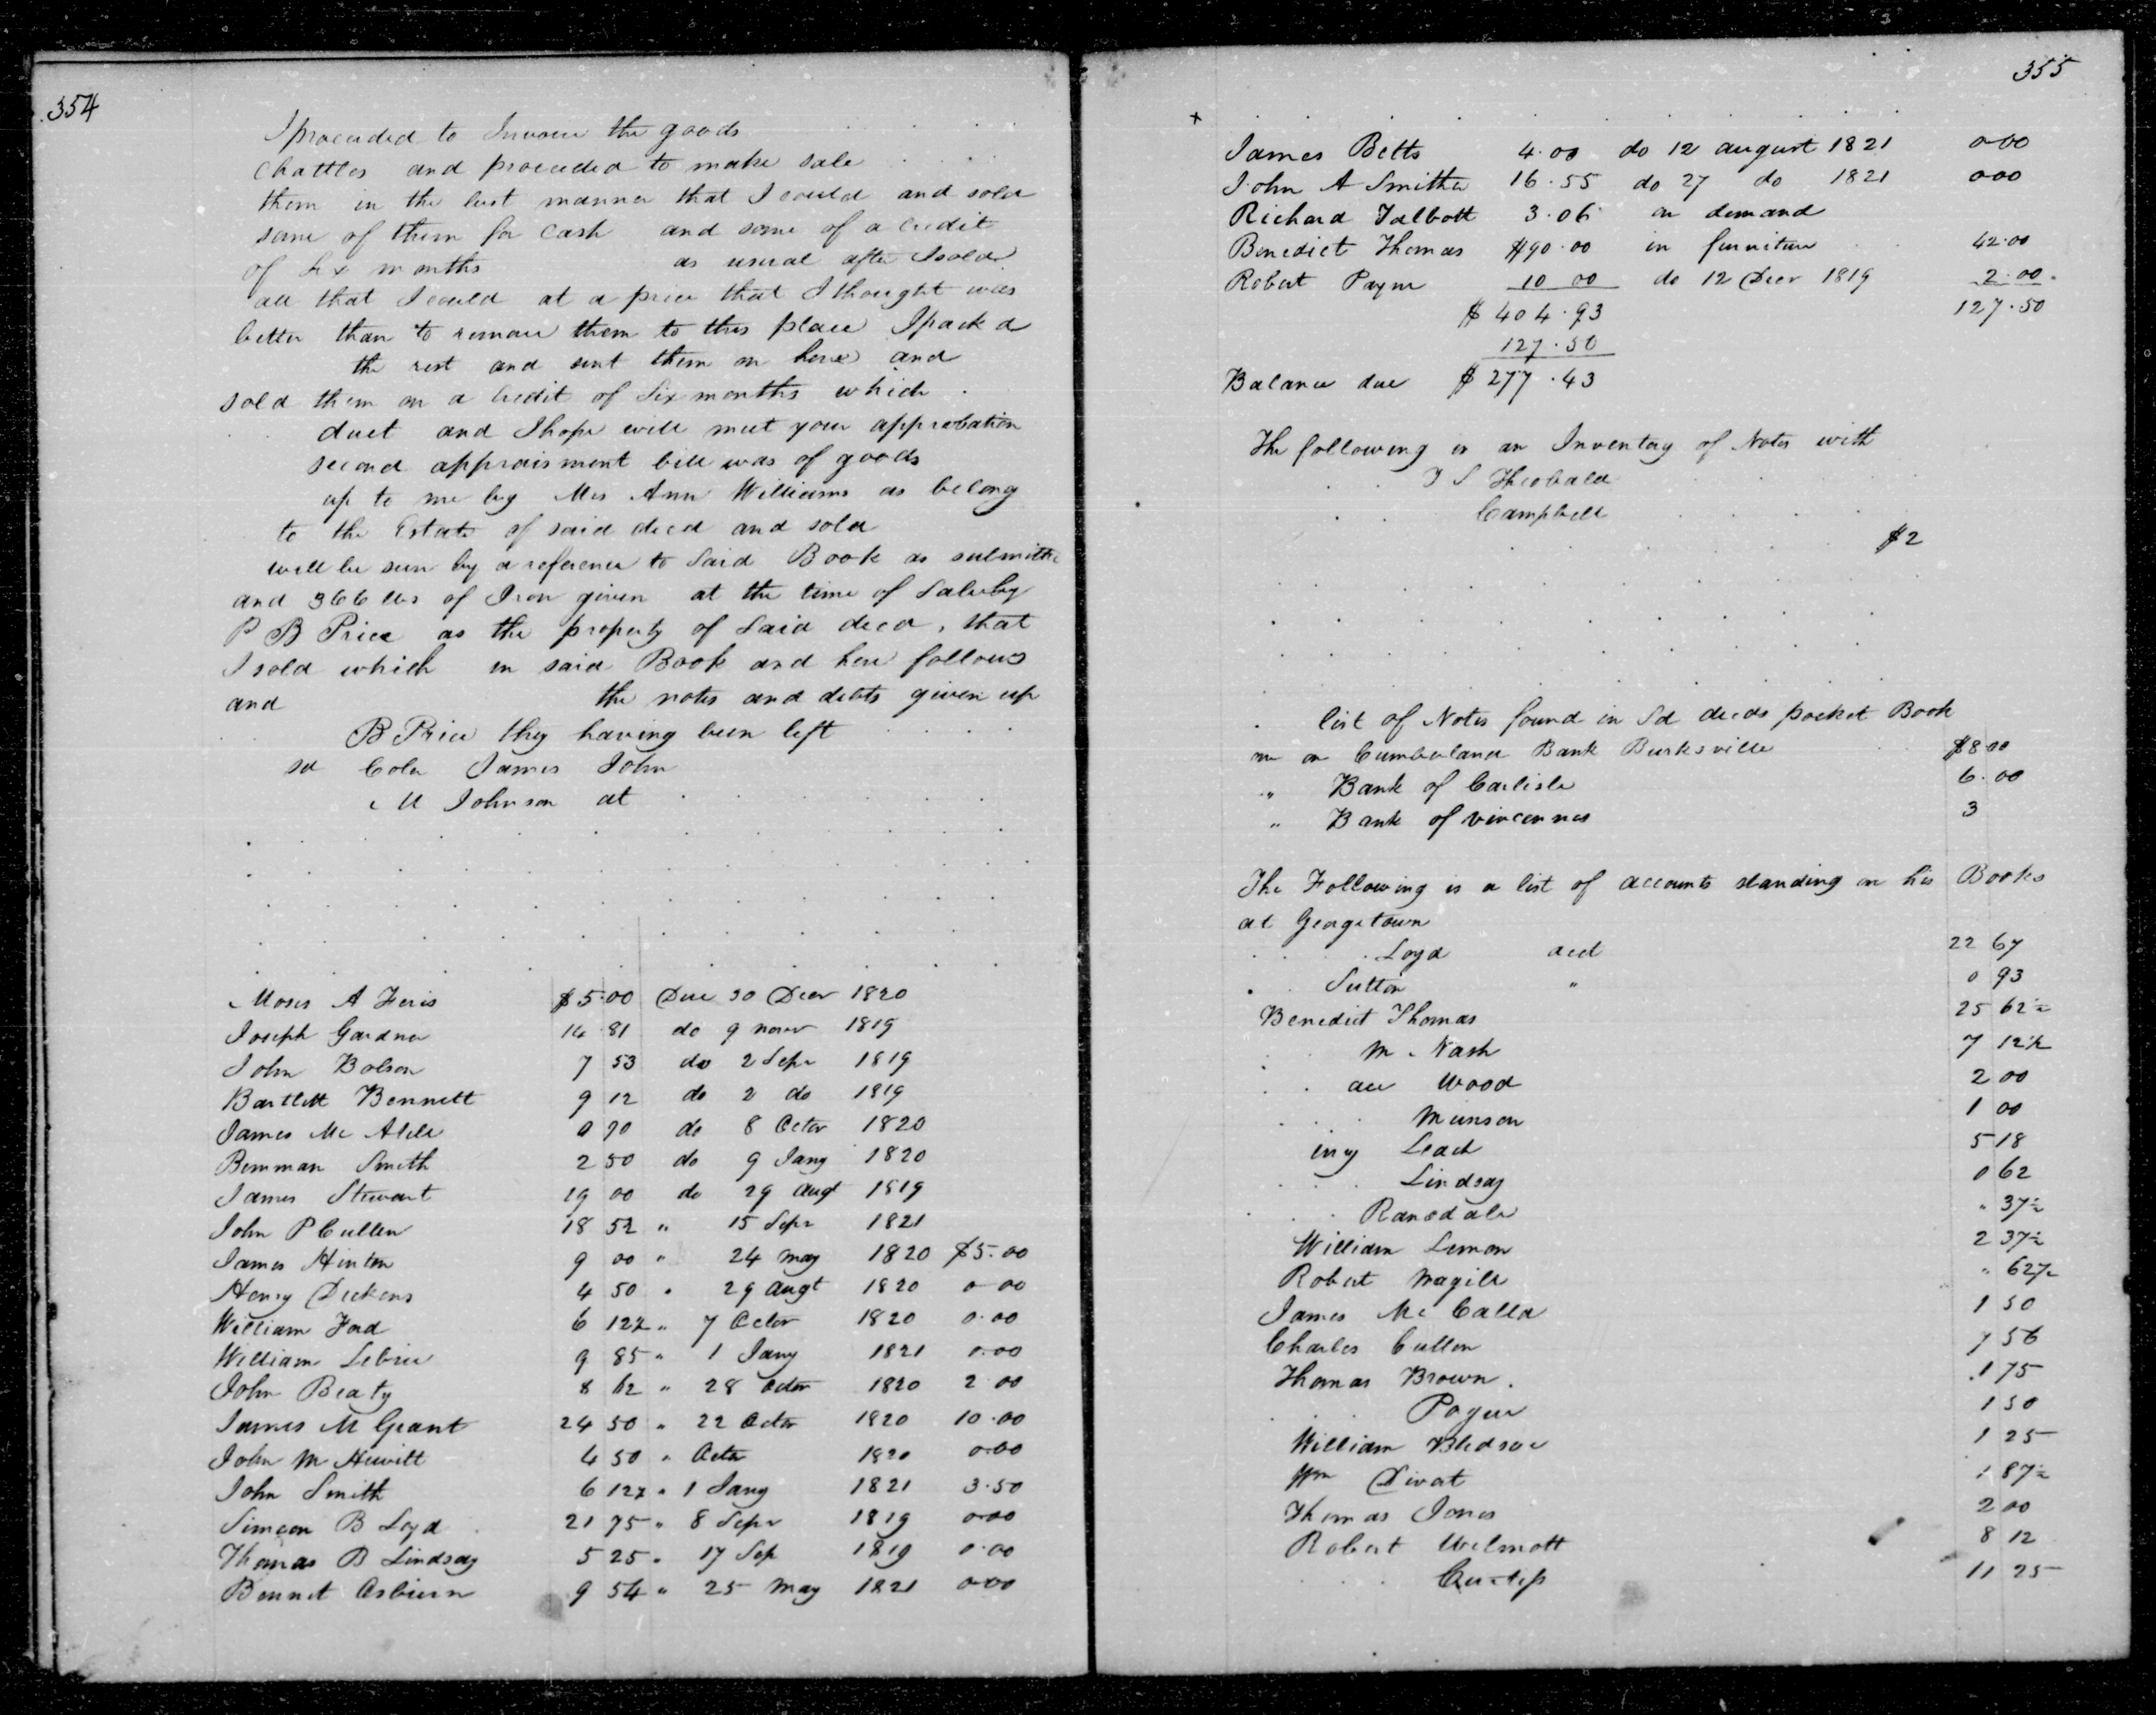 354
I proceeded to Invoice the goods
chattles and proceeded to make sale
them in the best manner that I could and sold
some of them for cash and some of a credit
of Six months as usual after I sold
all that I could at a price that I thought was
better than to remove them to this place I pack d
the rest and sent them on here and
sold them on a credit of Six months which
duct and I hope will meet your approbation
second appraisment bill was of goods
up to me by Mrs Ann Williams as belong
to the Estate of said decd and sold
will be seen by a reference to Said Book as submitte
and 366 lbs of Iron given at the time of Sale by
P B Price as the property of Said decd, that
I sold which in said Book and here follows
and the notes and debts given up
B Price they having been left
sd Colo James John
M Johnson at
Moses A Feris $5.00 Due 30 Decr 1820
Joseph Gardner 14 81 do 9 novr 1819
John Bolson 7 53 do 2 Sepr 1819
Bartlett Bennett 9 12 do 2 do 1819
James Mc 0 70 do 8 Octor 1820
Benman Smith 2 50 do 9 Jany 1820
James Stewart 19 00 do 29 Augt 1819
John P Cullen 18 52 " 15 Sepr 1821
James Hinton 9 00 " 24 may 1820 $5.00
Henry Dickens 4 50 " 29 Augt 1820 0 00
William Ford 6 12½ " 7 Octor 1820 0.00
William 9 85 " 1 Jany 1821 0.00
John Beaty 8 62 " 28 Octor 1820 2 00
James M Grant 24 50 " 22 Octor 1820 10.00
John M Hewitt 4 50 " Octr 1820 0.00
John Smith 6 12½ " 1 Jany 1821 3.50
Simeon B Loyd 21 75 " 8 Sepr 1819 0.00
Thomas B Lindsay 5 25 " 17 Sep 1819 0.00
Bennet Osburn 9 54 " 25 May 1821 0.00
355
James Betts 4.00 do 12 august 1821 0.00
John A Smitha 16.55 do 27 do 1821 0.00
Richard Talbott 3.06 on demand
Benedict Thomas $90.00 in furniture 42.00
Robert Payne 10 00 do 12 Decr 1819 2.00
$404.93 127.50
127.50
Balance due $277.43
The following is an Inventory of Notes with
T S Theobald
Campbell
$2
list of Notes found in Sd decds pocket Book
on Cumberland Bank Burksville $8.00
" Bank of Carlisle 6.00
" Bank of vincennes 3
The Following is a list of accounts standing on his Books
at Georgetown
Loyd acct 22 67
Sutton " 0 93
Benedict Thomas 25 62½
M. Nash 7 12½
Wood 2 00
Munson 1 00
iny Leach 5 18
Lindsay 0 62
Ransdale " 37½
William Lemon 2 37½
Robert Magill " 62½
James Mc Calla 1 50
Charles Cullen 7 56
Thomas Brown. 1 75
Pogue 1 50
William Bledsoe 1 25
Wm 1 87½
Thomas Jones 2 00
Robert Wilmott 8 12
11 25